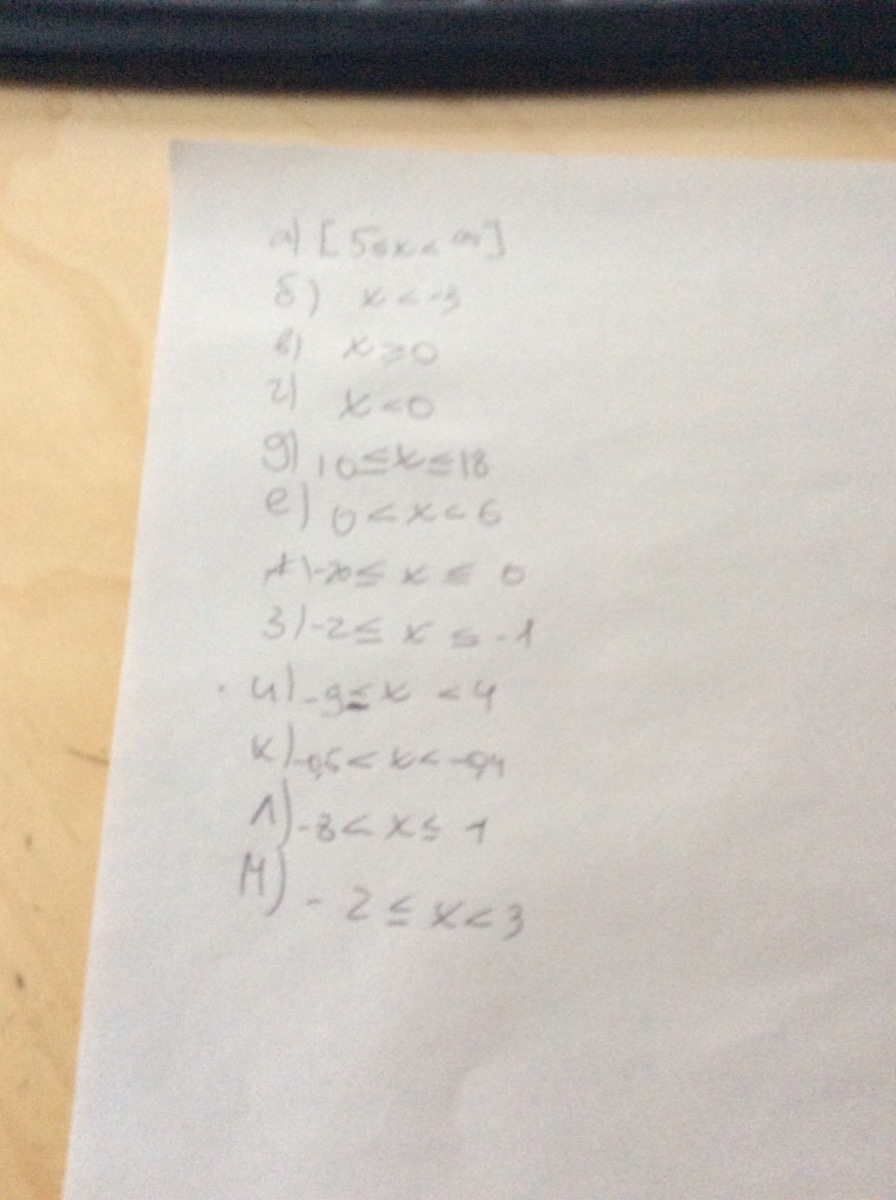 а) [5≤x<∞]
б) x<-3
в) x≥0
г) x<0
д) 10≤x≤18
е) 0<x<6
ж) -20≤x≤0
з) -2≤x≤-1
и) -9≤x<4
к) -0,5<x<-0,4
л) -8<x≤1
м) -2≤x<3